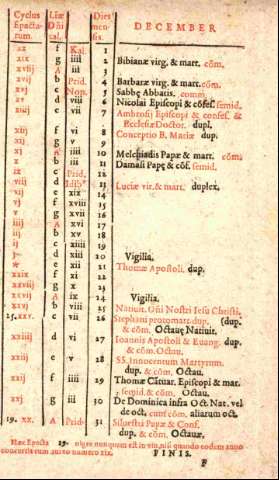 Cyclus Liæ Dies DECEMBER
Epacta- Dñi men-
rum. cal. sis.
xx f Kal. 1
xix g iiij 2 Bibianæ virg. & mart. cõm.
xviij A iij 3
xvij b Prid. 4 Barbaræ virg. & mart. cõm.
xvj c Non. 5 Sabbę Abbatis. comm.
xv d viij 6 Nicolai Episcopi & cõfeſ. ſemid.
xiiij e vij 7 Ambroſij Episcopi & confeſſ. &
Eccleſiæ Doctor. dupl.
f vj 8 Conceptio B. Mariæ dup.
xij g v 9
xj A iiij 10 Melchiadis Papæ & mart. cõm.
x b iij 11 Damaſi Papę & cõf. ſemid.
ix c Prid. 12
viij d Idib' 13 Luciæ vir. & mart. duplex.
vij e xix 14
vj f xviij 15
v g xvij 16
iiij A xvj 17
iij b xv 18
ij c xiiij 19
j d xiij 20 Vigilia.
e xij 21 Thomæ Apoſtoli. dup.
xxix f xj 22
xxviij g x 23
xxvij A ix 24 Vigilia.
xxvj b viij 25 Natiuit. Dñi Noſtri Ieſu Chriſti.
25.xxv. c vij 26 Stephani protomart. dup. (dup.
& cõm. Octauę Natiuit.
xxiiij d vj 27 Ioannis Apoſtoli & Euang. dup.
& cõm. Octau.
xxiij e v 28 SS. Innocentum Martyrum.
dup. & cõm. Octau.
xxij f iiij 29 Thomæ Cãtuar. Episcopi & mar.
ſemid. & cõm. Octau.
xxj g iij 30 De Dominica infra Oct. Nat. vel
de oct. cum cõm. aliarum oct.
19. xx. A Prid. 31 Silueſtri Papæ & Conf.
dup. & cõm. Octauar.
Hæc Epacta 19. nunquam eſt in vſu, niſi quando eodem anno
concurrit cum aureo numero xix. FINIS.
F